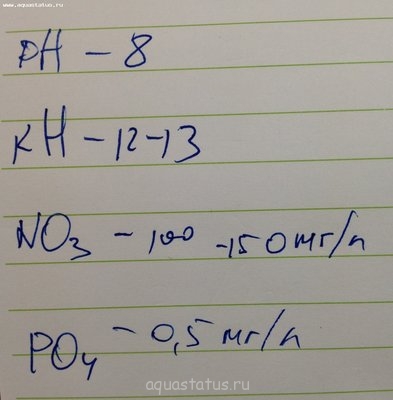 www.aquastatus.ru
pH - 8
KH - 12-13
NO3 - 100 -150 мг/л
PO4 - 0,5 мг/л
aquastatus.ru